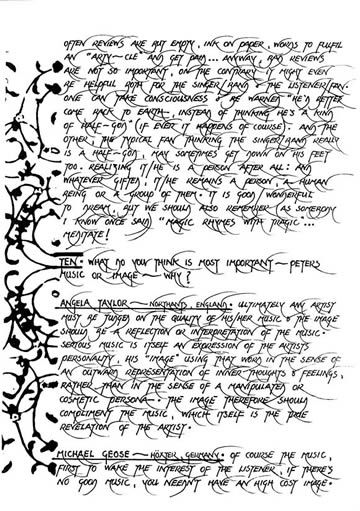 OFTEN REVIEWS ARE BUT EMPTY, INK ON PAPER, WORDS TO FULFIL
AN "ARTY~CLE AND GET PAID... ANYWAY, BAD REVIEWS
ARE NOT SO IMPORTANT, ON THE CONTRARY IT MIGHT EVEN
BE HELPFUL BOTH FOR THE SINGER/BAND & THE LISTENER/FAN.
ONE CAN TAKE CONSCIOUSNESS & BE WARNED "HE'D BETTER
COME BACK TO EARTH~, INSTEAD OF THINKING HE'S A KIND
OF HALF-GOD (IF EVER IT HAPPENS OF COURSE). AND THE
OTHER, THE TYPICAL FAN THINKING THE SINGER/BAND REALLY
IS A HALF-GOD, MAY SOMETIMES GET DOWN ON HIS FEET
TOO. REALISING IT/HE IS A PERSON AFTER ALL: AND
WHATEVER GIFTED IT/HE REMAINS A PERSON, A HUMAN
BEING OR A GROUP OF THEM. IT IS GOOD & WONDERFUL
TO DREAM, BUT WE SHOULD ALSO REMEMBER AS SOMEBODY
I KNOW ONCE SAID "MAGIC RHYMES WITH TRAGIC"...
MEDITATE!
TEN: WHAT DO YOU THINK IS MOST IMPORTANT~ PETERS
MUSIC OR IMAGE ~ WHY?
ANGELA TAYLOR ~ NORTHANTS, ENGLAND. ULTIMATELY ANY ARTIST
MUST BE JUDGED ON THE QUALITY OF HIS/HER MUSIC & THE IMAGE
SHOULD BE A REFLECTION OR INTERPRETATION OF THE MUSIC.
SERIOUS MUSIC IS ITSELF AN EXPRESSION OF THE ARTISTS
PERSONALITY, HIS "IMAGE" USING THAT WORD IN THE SENSE OF
AN OUTWARD REPRESENTATION OF INNER THOUGHTS & FEELINGS,
RATHER THAN IN THE SENSE OF A MANIPULATED OR
COSMETIC PERSONA~. THE IMAGE THEREFORE SHOULD
COMPLIMENT THE MUSIC, WHICH ITSELF IS THE TRUE
REVELATION OF THE ARTIST.
MICHAEL GEOSE ~ HÖXTER, GERMANY. OF COURSE THE MUSIC,
FIRST TO WAKE THE INTEREST OF THE LISTENER, IF THERE'S
NO GOOD MUSIC, YOU NEEDN'T HAVE AN HIGH COST IMAGE.